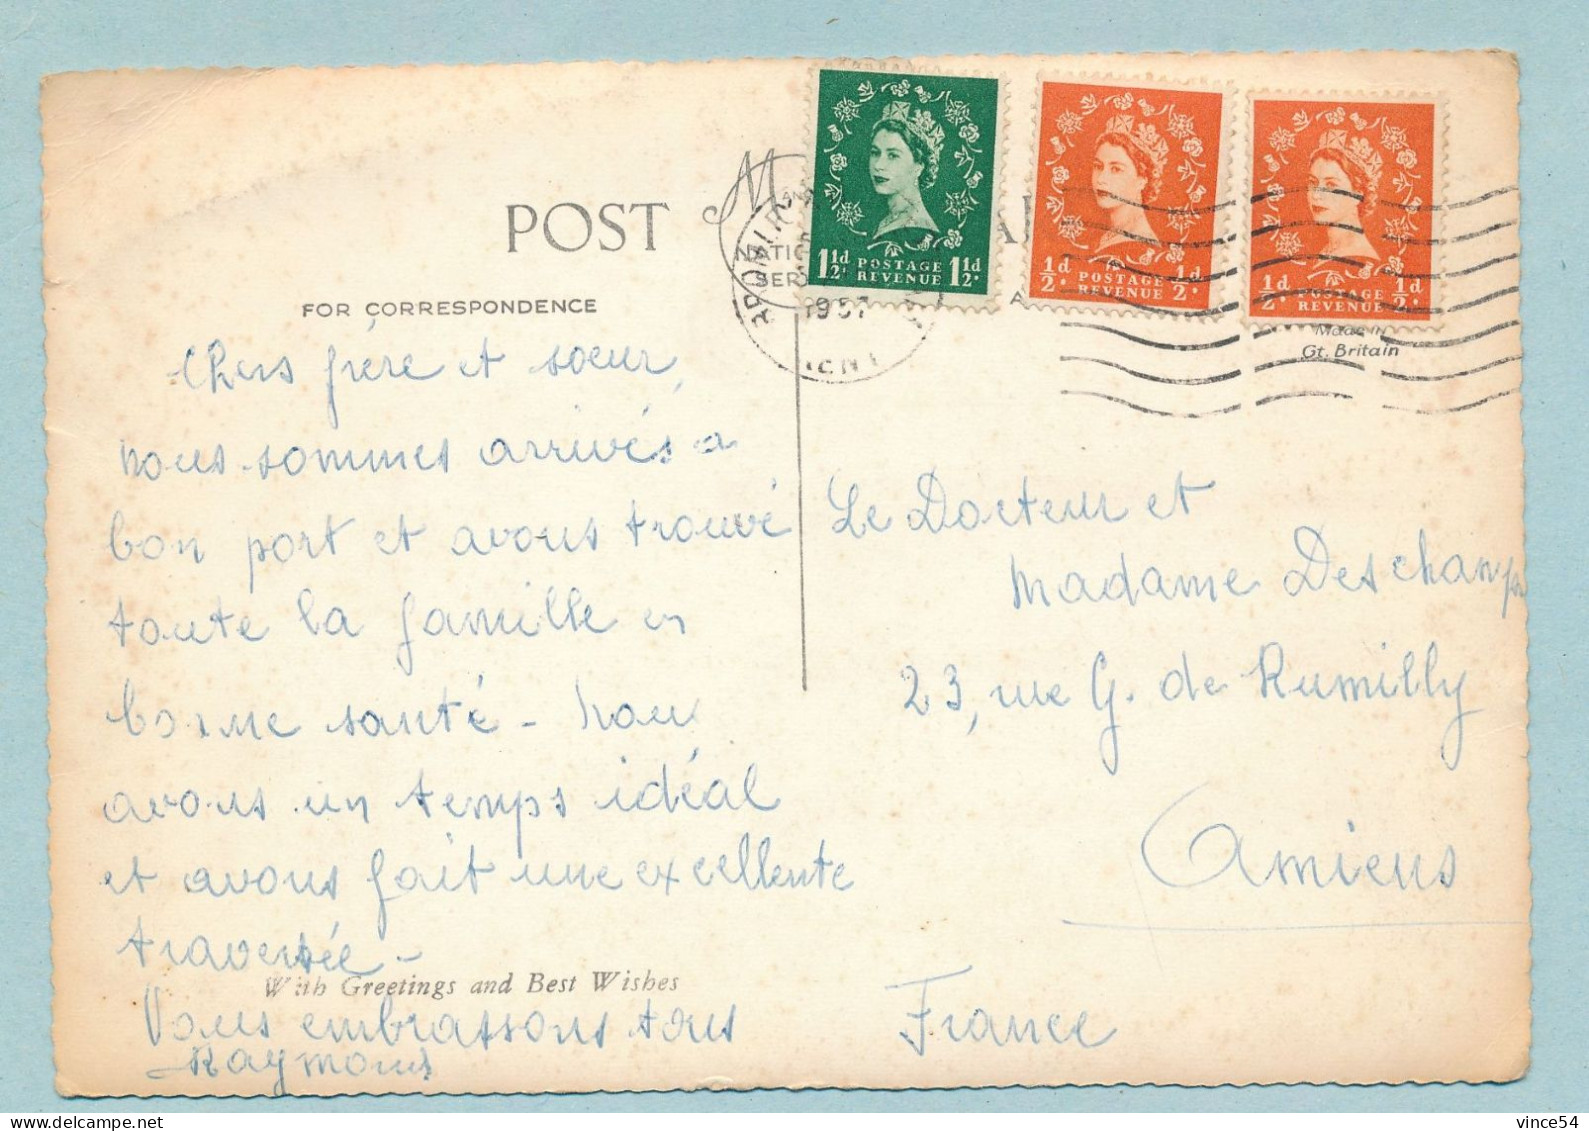 POST
FOR CORRESPONDENCE
1957
1½d POSTAGE REVENUE 1½d
½d POSTAGE REVENUE ½d
½d POSTAGE REVENUE ½d
Made in
Gt. Britain
Chers frère et soeur,
nous sommes arrivés a
bon port et avons trouvé
toute la famille en
bonne santé - Nous
avons un temps idéal
et avons fait une excellente
traversée -
With Greetings and Best Wishes
Vous embrassons tous
Le Docteur et
Madame Deschamps
23, rue G. de Rumilly
Amiens
France
vince54